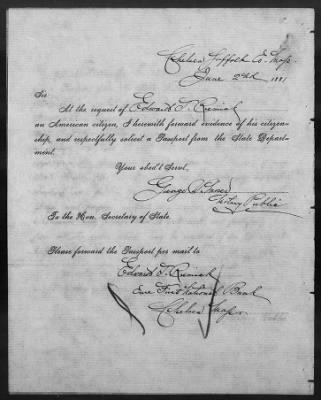 Chelsea Suffolk Co. Mass.
June 2nd 1881
Sir
At the request of Edward F.
an American citizen, I herewith forward evidence of his citizen-
ship, and respectfully solicit a Passport from the State Depart-
ment.
Your obed't Servt,
George
Notary Public
To the Hon. Secretary of State.
Please forward the Passport per mail to
Edward F.
Care First National Bank
Chelsea Mass.